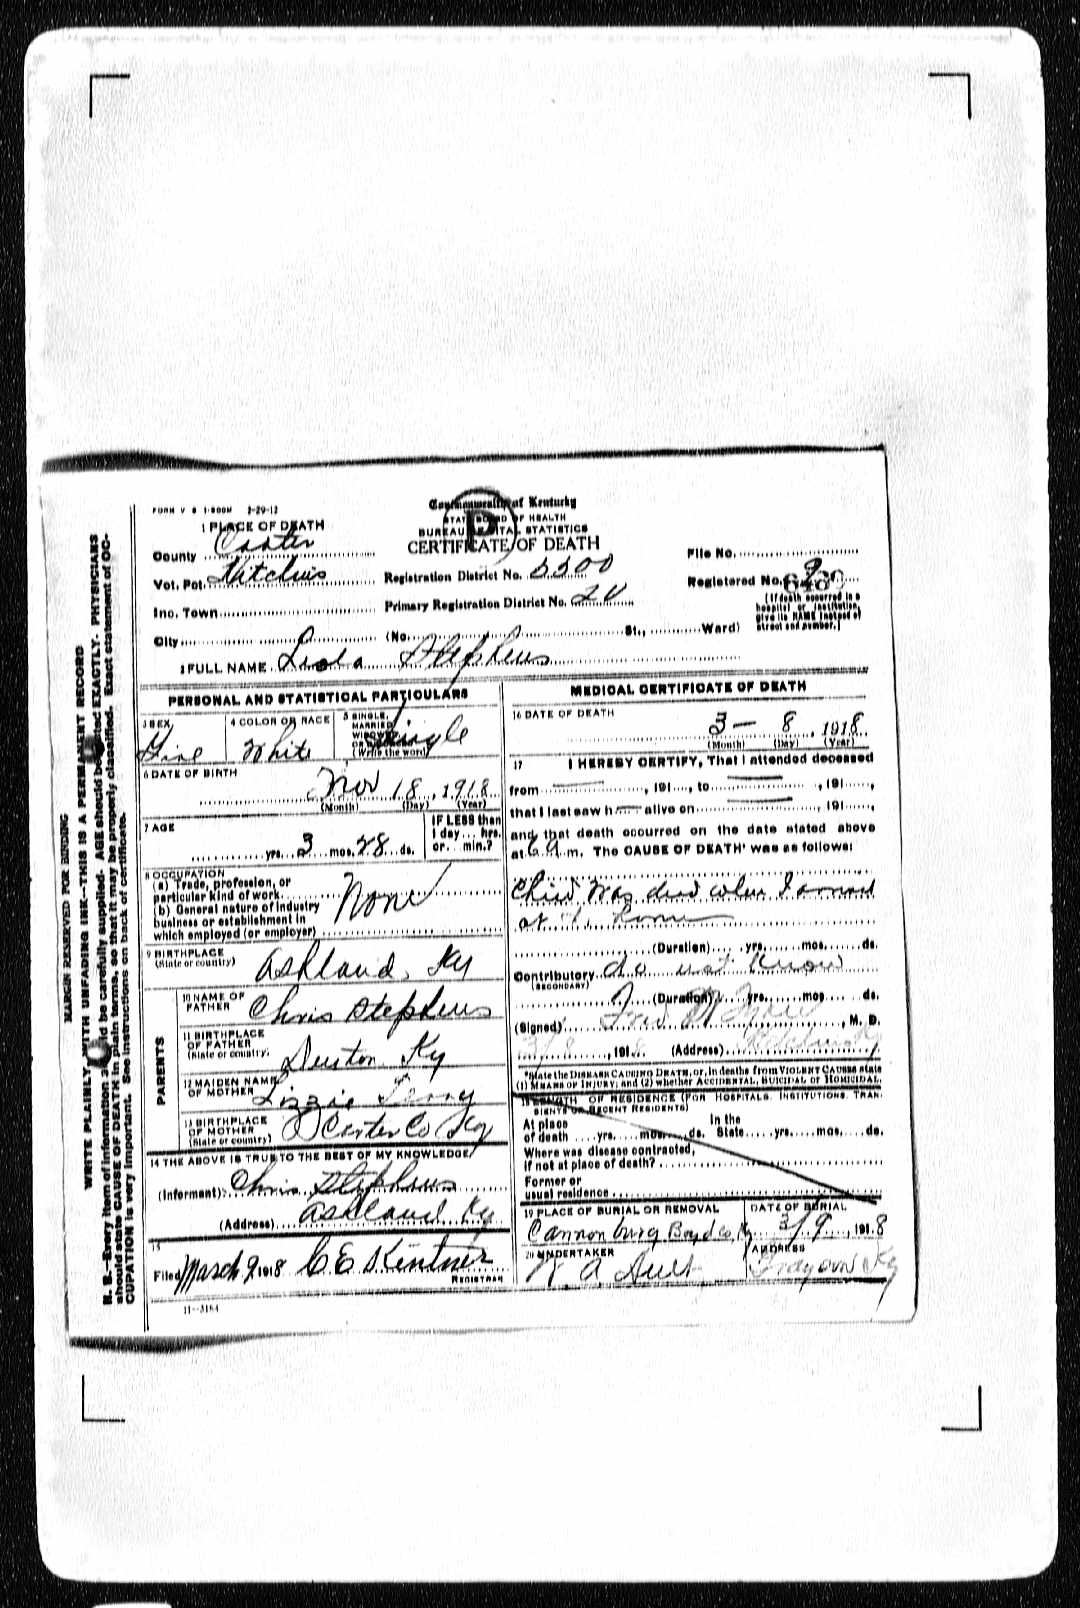 FORM V S 1-500M 2-29-12
Commonwealth of Kentucky
STATE BOARD OF HEALTH
BUREAU VITAL STATISTICS
CERTIFICATE OF DEATH
1 PLACE OF DEATH
County Carter
Vot. Pct. Hitchins
Registration District No. 5500
File No.
Registered No. 9
6469
Inc. Town
Primary Registration District No. 20
(If death occurred in a hospital or institution, give its NAME instead of street and number.)
City (No. St., Ward)
2 FULL NAME Leola Stephens
PERSONAL AND STATISTICAL PARTICULARS
3 SEX
4 COLOR OR RACE White
5 SINGLE, MARRIED, WIDOWED, OR DIVORCED (Write the word) Single
6 DATE OF BIRTH
Nov 18, 1918
(Month) (Day) (Year)
7 AGE
yrs. 3 mos. 28 ds.
IF LESS than 1 day... hrs. or... min.?
8 OCCUPATION
(a) Trade, profession, or particular kind of work
(b) General nature of industry business or establishment in which employed (or employer)
None
9 BIRTHPLACE
(State or country) Ashland, Ky
PARENTS
10 NAME OF FATHER Chris Stephens
11 BIRTHPLACE OF FATHER (State or country) Denton Ky
12 MAIDEN NAME OF MOTHER Lizzie Terry
13 BIRTHPLACE OF MOTHER (State or country) Carter Co Ky
14 THE ABOVE IS TRUE TO THE BEST OF MY KNOWLEDGE
(Informant) Chris Stephens
(Address) Ashland Ky
15
Filed March 9 1918 C E Kintner
REGISTRAR
11-3184
MEDICAL CERTIFICATE OF DEATH
16 DATE OF DEATH
3 - 8, 1918
(Month) (Day) (Year)
17 I HEREBY CERTIFY, That I attended deceased
from , 191..., to , 191...,
that I last saw h alive on , 191...,
and that death occurred on the date stated above
at 6 A m. The CAUSE OF DEATH* was as follows:
Child was dead when I arrived
at
(Duration) yrs. mos. ds.
Contributory do not know
(SECONDARY)
(Duration) yrs. mos. ds.
(Signed) Fred , M. D.
3/8, 1918 (Address) Hitchins Ky
*State the DISEASE CAUSING DEATH, or, in deaths from VIOLENT CAUSES state
(1) MEANS OF INJURY; and (2) whether ACCIDENTAL, SUICIDAL or HOMICIDAL.
18 LENGTH OF RESIDENCE (FOR HOSPITALS, INSTITUTIONS, TRANSIENTS OR RECENT RESIDENTS)
At place of death yrs. mos. ds. In the State yrs. mos. ds.
Where was disease contracted,
if not at place of death?
Former or
usual residence
19 PLACE OF BURIAL OR REMOVAL
Cannonsburg Boyd Co, Ky
DATE OF BURIAL
3/9, 1918
20 UNDERTAKER
ADDRESS
Grayson Ky
MARGIN RESERVED FOR BINDING
WRITE PLAINLY WITH UNFADING INK--THIS IS A PERMANENT RECORD
N. B.--Every item of information should be carefully supplied. AGE should be stated EXACTLY. PHYSICIANS
should state CAUSE OF DEATH in plain terms, so that it may be properly classified. Exact statement of OC-
CUPATION is very important. See instructions on back of certificate.